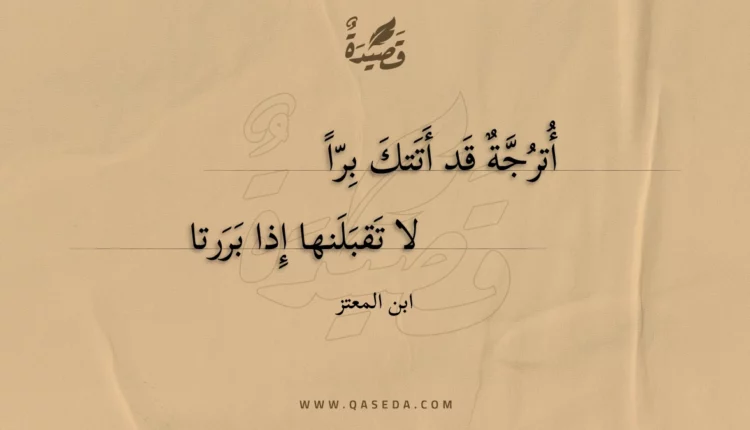 قَصِيدَةٌ
أُترُجَّةٌ قَد أَتَتكَ بِرّاً
لا تَقبَلَنها إِذا بَرَرتا
ابن المعتز
WWW.QASEDA.COM